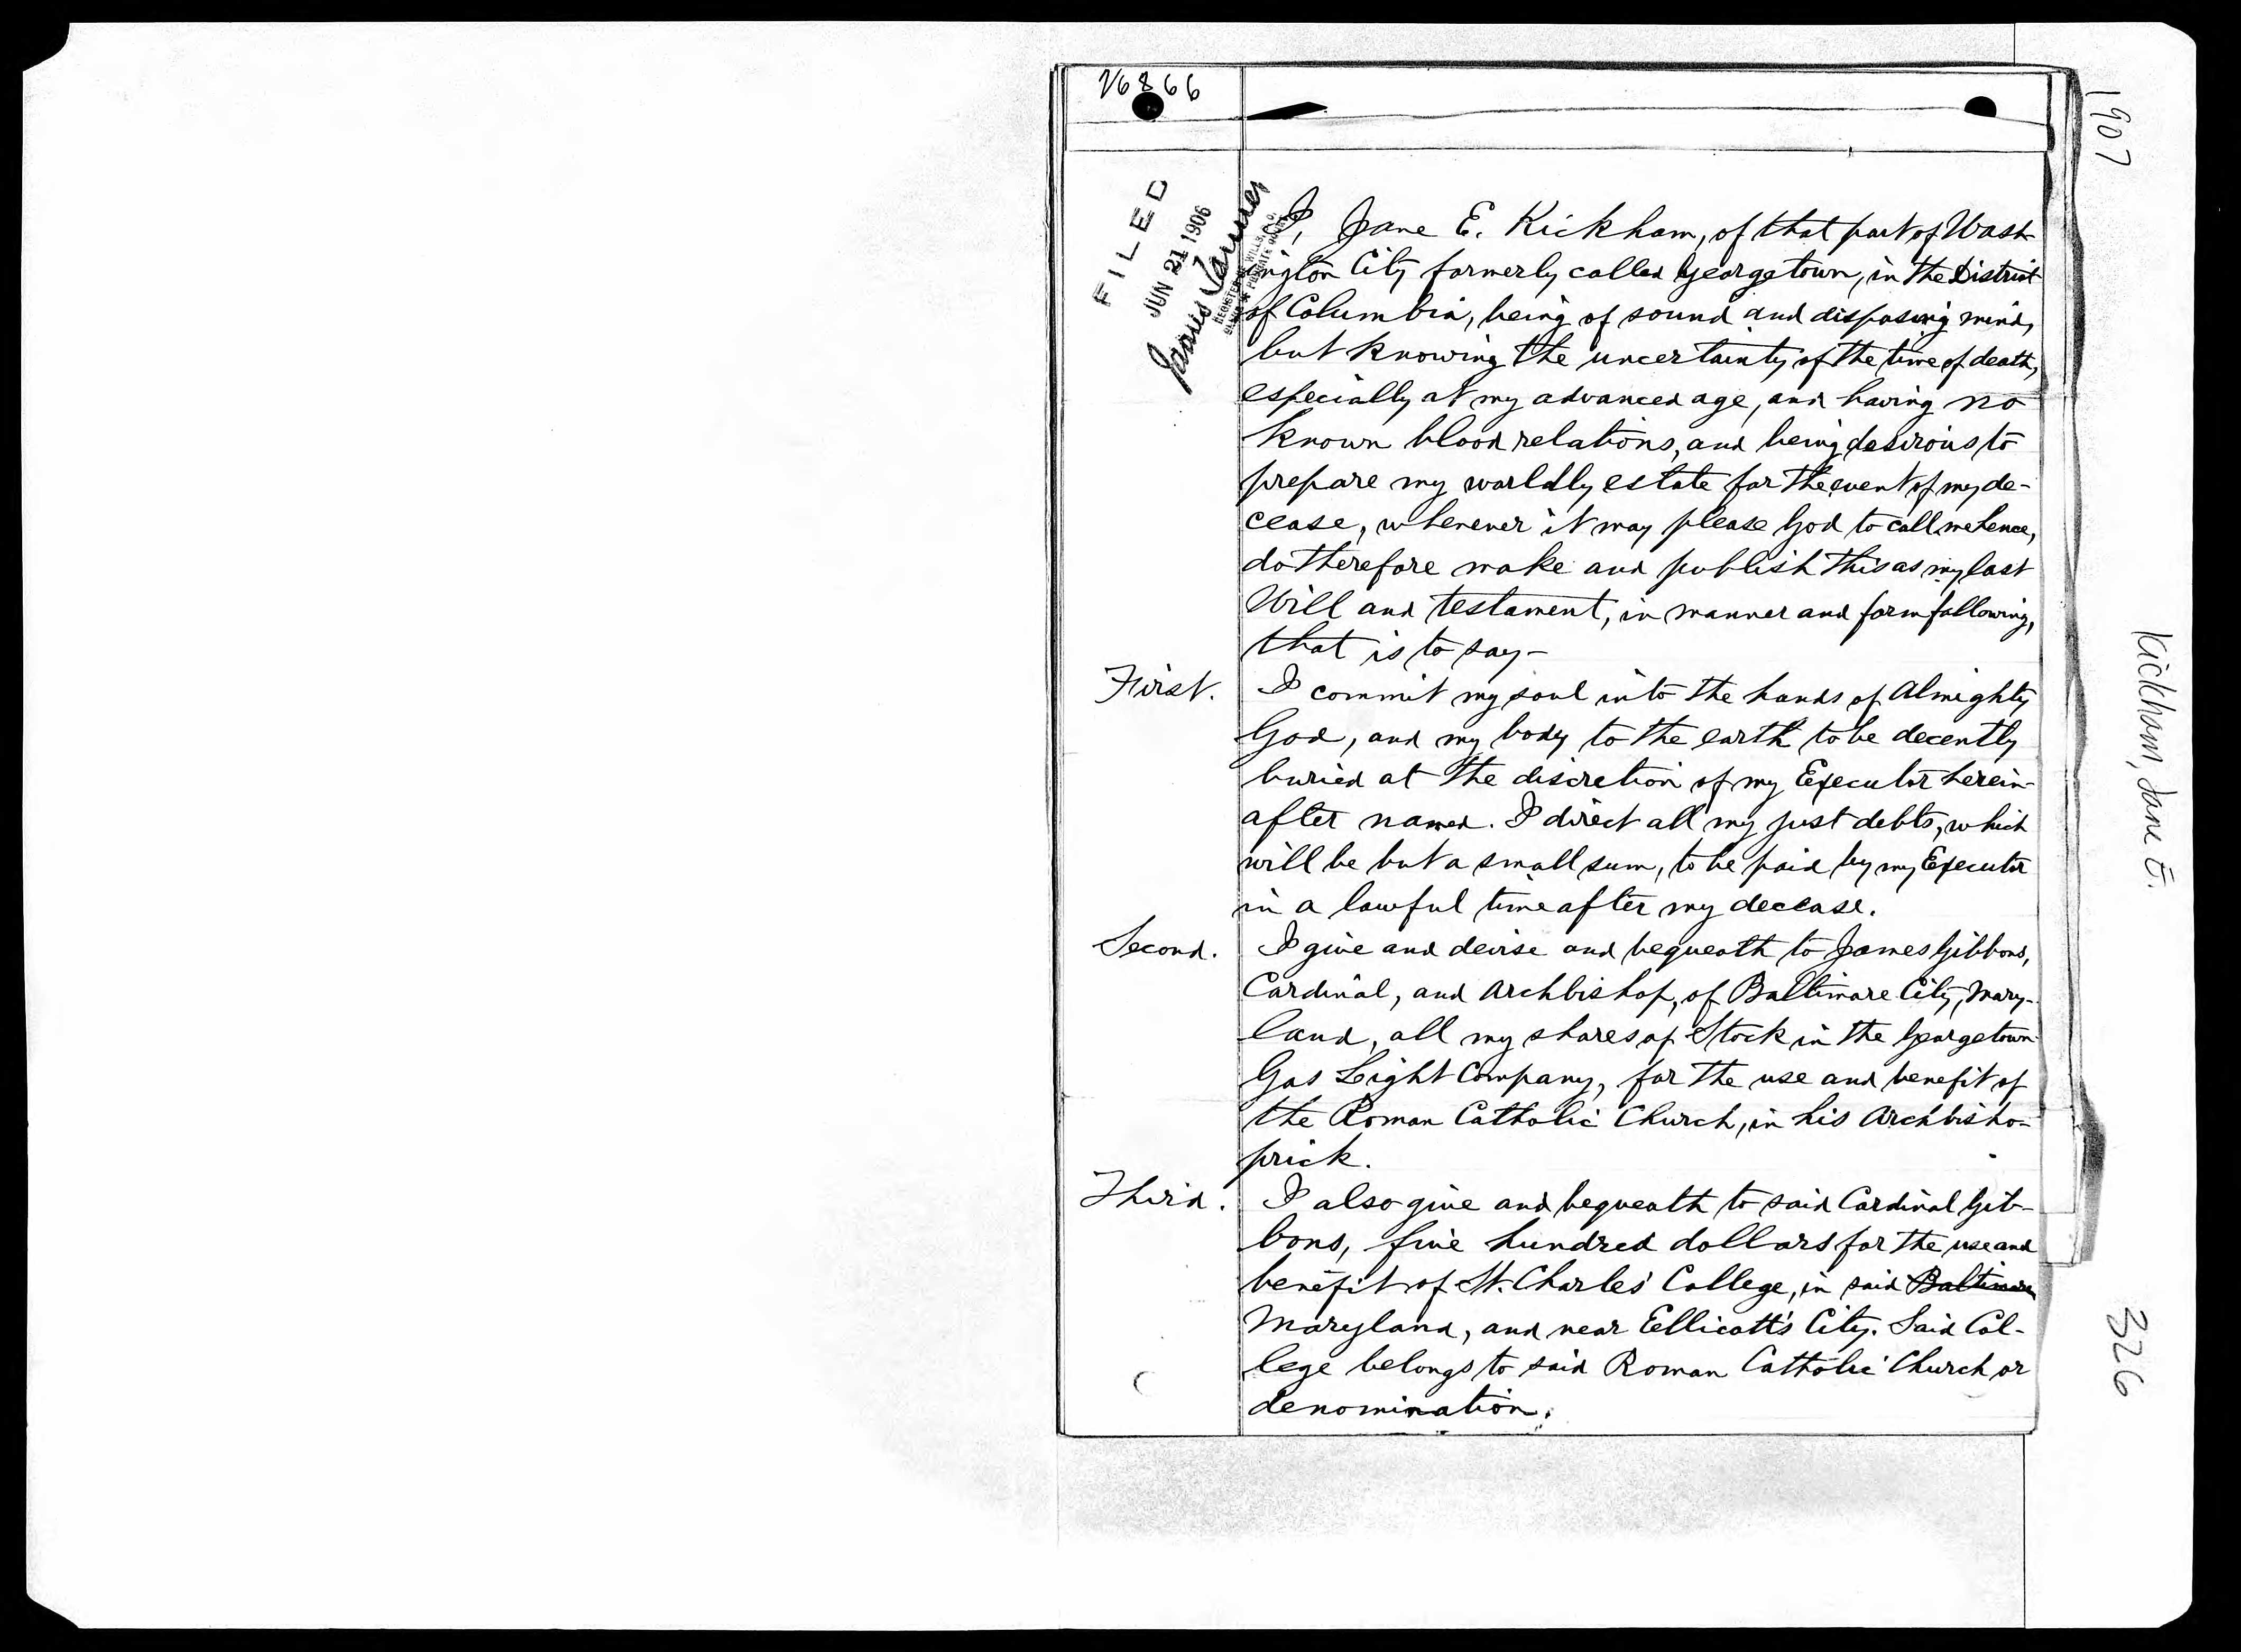 16866
FILED
JUN 21 1906
James Tanner
REGISTER OF WILLS, D.C.
I, Jane E. Kickham, of that part of Wash-
ington City formerly called Georgetown, in the District
of Columbia, being of sound and disposing mind,
but knowing the uncertainty of the time of death,
especially at my advanced age, and having no
known blood relations, and being desirous to
prepare my worldly estate for the event of my de-
cease, whenever it may please God to call me hence,
do therefore make and publish this as my last
Will and testament, in manner and form following,
that is to say-
First. I commit my soul into the hands of Almighty
God, and my body to the earth to be decently
buried at the discretion of my Executor herein-
after named. I direct all my just debts, which
will be but a small sum, to be paid by my Executor
in a lawful time after my decease.
Second. I give and devise and bequeath to James Gibbons,
Cardinal, and Archbishop, of Baltimore City, Mary-
land, all my shares of Stock in the Georgetown
Gas Light Company, for the use and benefit of
the Roman Catholic Church, in his Archbisho-
prick.
Third. I also give and bequeath to said Cardinal Gib-
bons, five hundred dollars for the use and
benefit of St. Charles' College, in said Baltimore
Maryland, and near Ellicott's City. Said Col-
lege belongs to said Roman Catholic Church or
denomination.
1907
Kickham, Jane E.
326